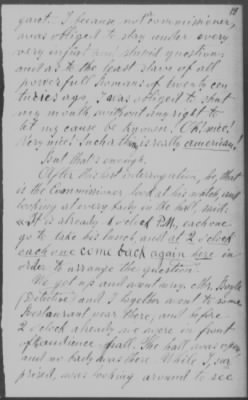 19
gant. I because not commissioner,
was obliged to stay under every
very unjust and stupid question,
and as to the least slave of all
powerfull Romans of twenty cen
turies ago I was obliged to shut
my mouth without any right to
let my cause be known. Oh, nice!
Very nice! Such a thing is really american!
But that's enough.
After this last interrogation, he, that
is the Commissioner look at his watch, and
looking at every body in the hall, said:
"It is already 1 o'clock P.M., each one
go to take his lunch, and at 2 o'clock
each one come back again here in
order to arrange the question.
We got up and went away. Mr.
(Detective) and I together went to some
Restaurant near there, and before
2 o'clock already we were in front
of audience hall. The hall was open
and no body was there. While I, sur
prised, was looking around to see